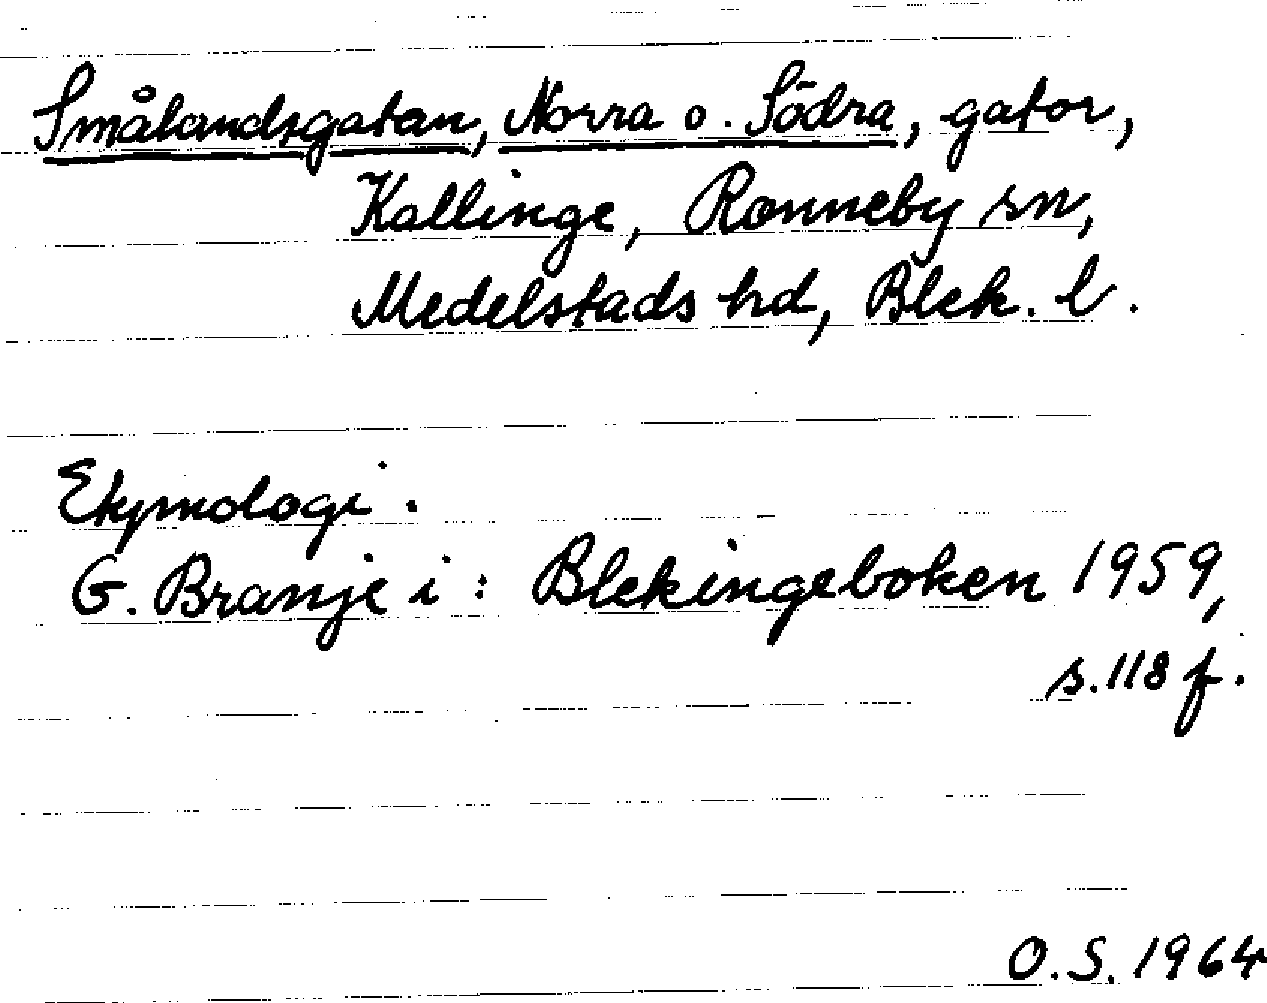 Smålandsgatan, Norra o. Södra, gator,
Kallinge, Ronneby sn,
Medelstads hd, Blek. l.
Etymologi.
G. Branje i: Blekingeboken 1959,
s. 118 f.
O.S. 1964